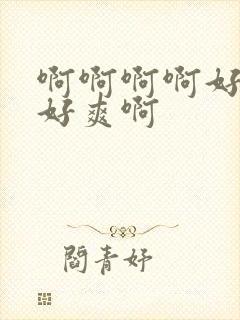 啊啊啊啊好
好爽啊
閻青妤